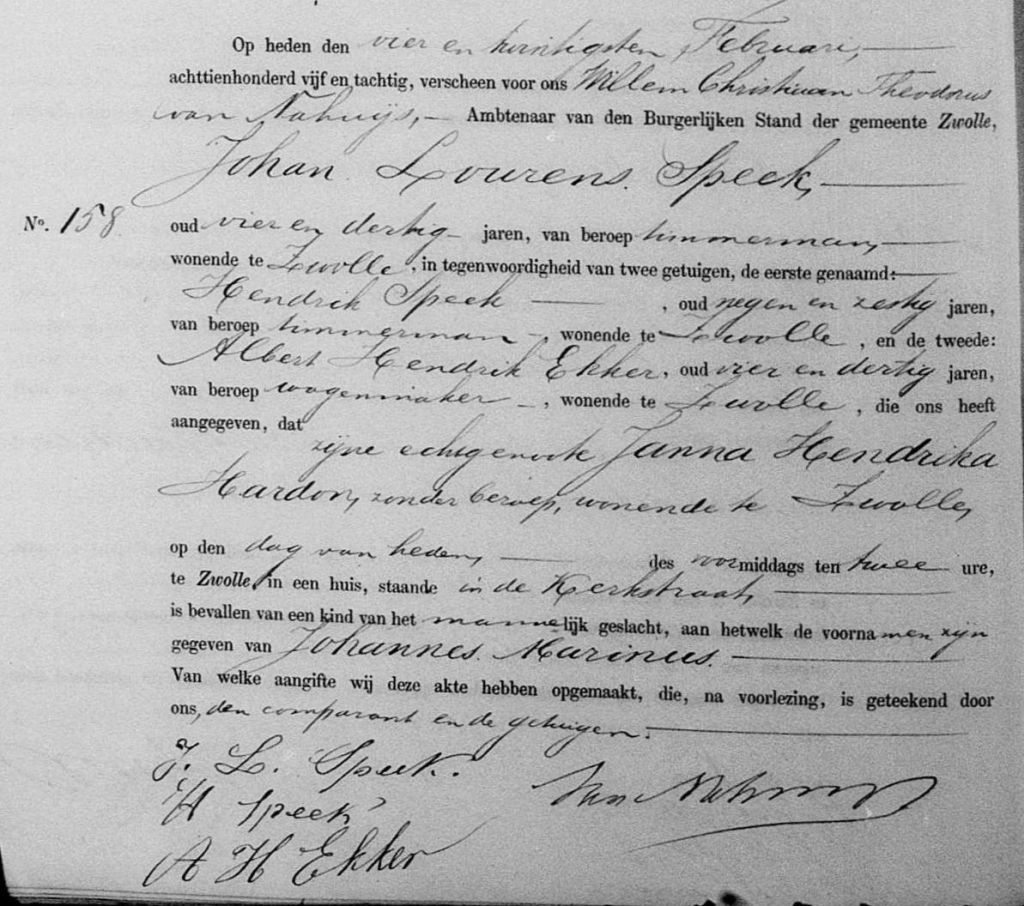 Op heden den vier en twintigsten Februari,
achttienhonderd vijf en tachtig, verscheen voor ons Willem Christiaan Theodorus
van Nahuijs, Ambtenaar van den Burgerlijken Stand der gemeente Zwolle,
Johan Lourens Speek,
No. 158 oud vier en dertig jaren, van beroep timmerman,
wonende te Zwolle, in tegenwoordigheid van twee getuigen, de eerste genaamd:
Hendrik Speek, oud negen en zestig jaren,
van beroep timmerman, wonende te Zwolle, en de tweede:
Albert Hendrik Ekker, oud vier en dertig jaren,
van beroep wagenmaker, wonende te Zwolle, die ons heeft
aangegeven, dat
zijne echtgenoote Janna Hendrika
Hardon, zonder beroep, wonende te Zwolle,
op den dag van heden, des voormiddags ten twee ure,
te Zwolle, in een huis, staande in de Kerkstraat,
is bevallen van een kind van het mannelijk geslacht, aan hetwelk de voornamen zijn
gegeven van Johannes Marinus.
Van welke aangifte wij deze akte hebben opgemaakt, die, na voorlezing, is geteekend door
ons, den comparant en de getuigen.
J. L. Speek.
van Nahuys
H Speek
A H Ekker